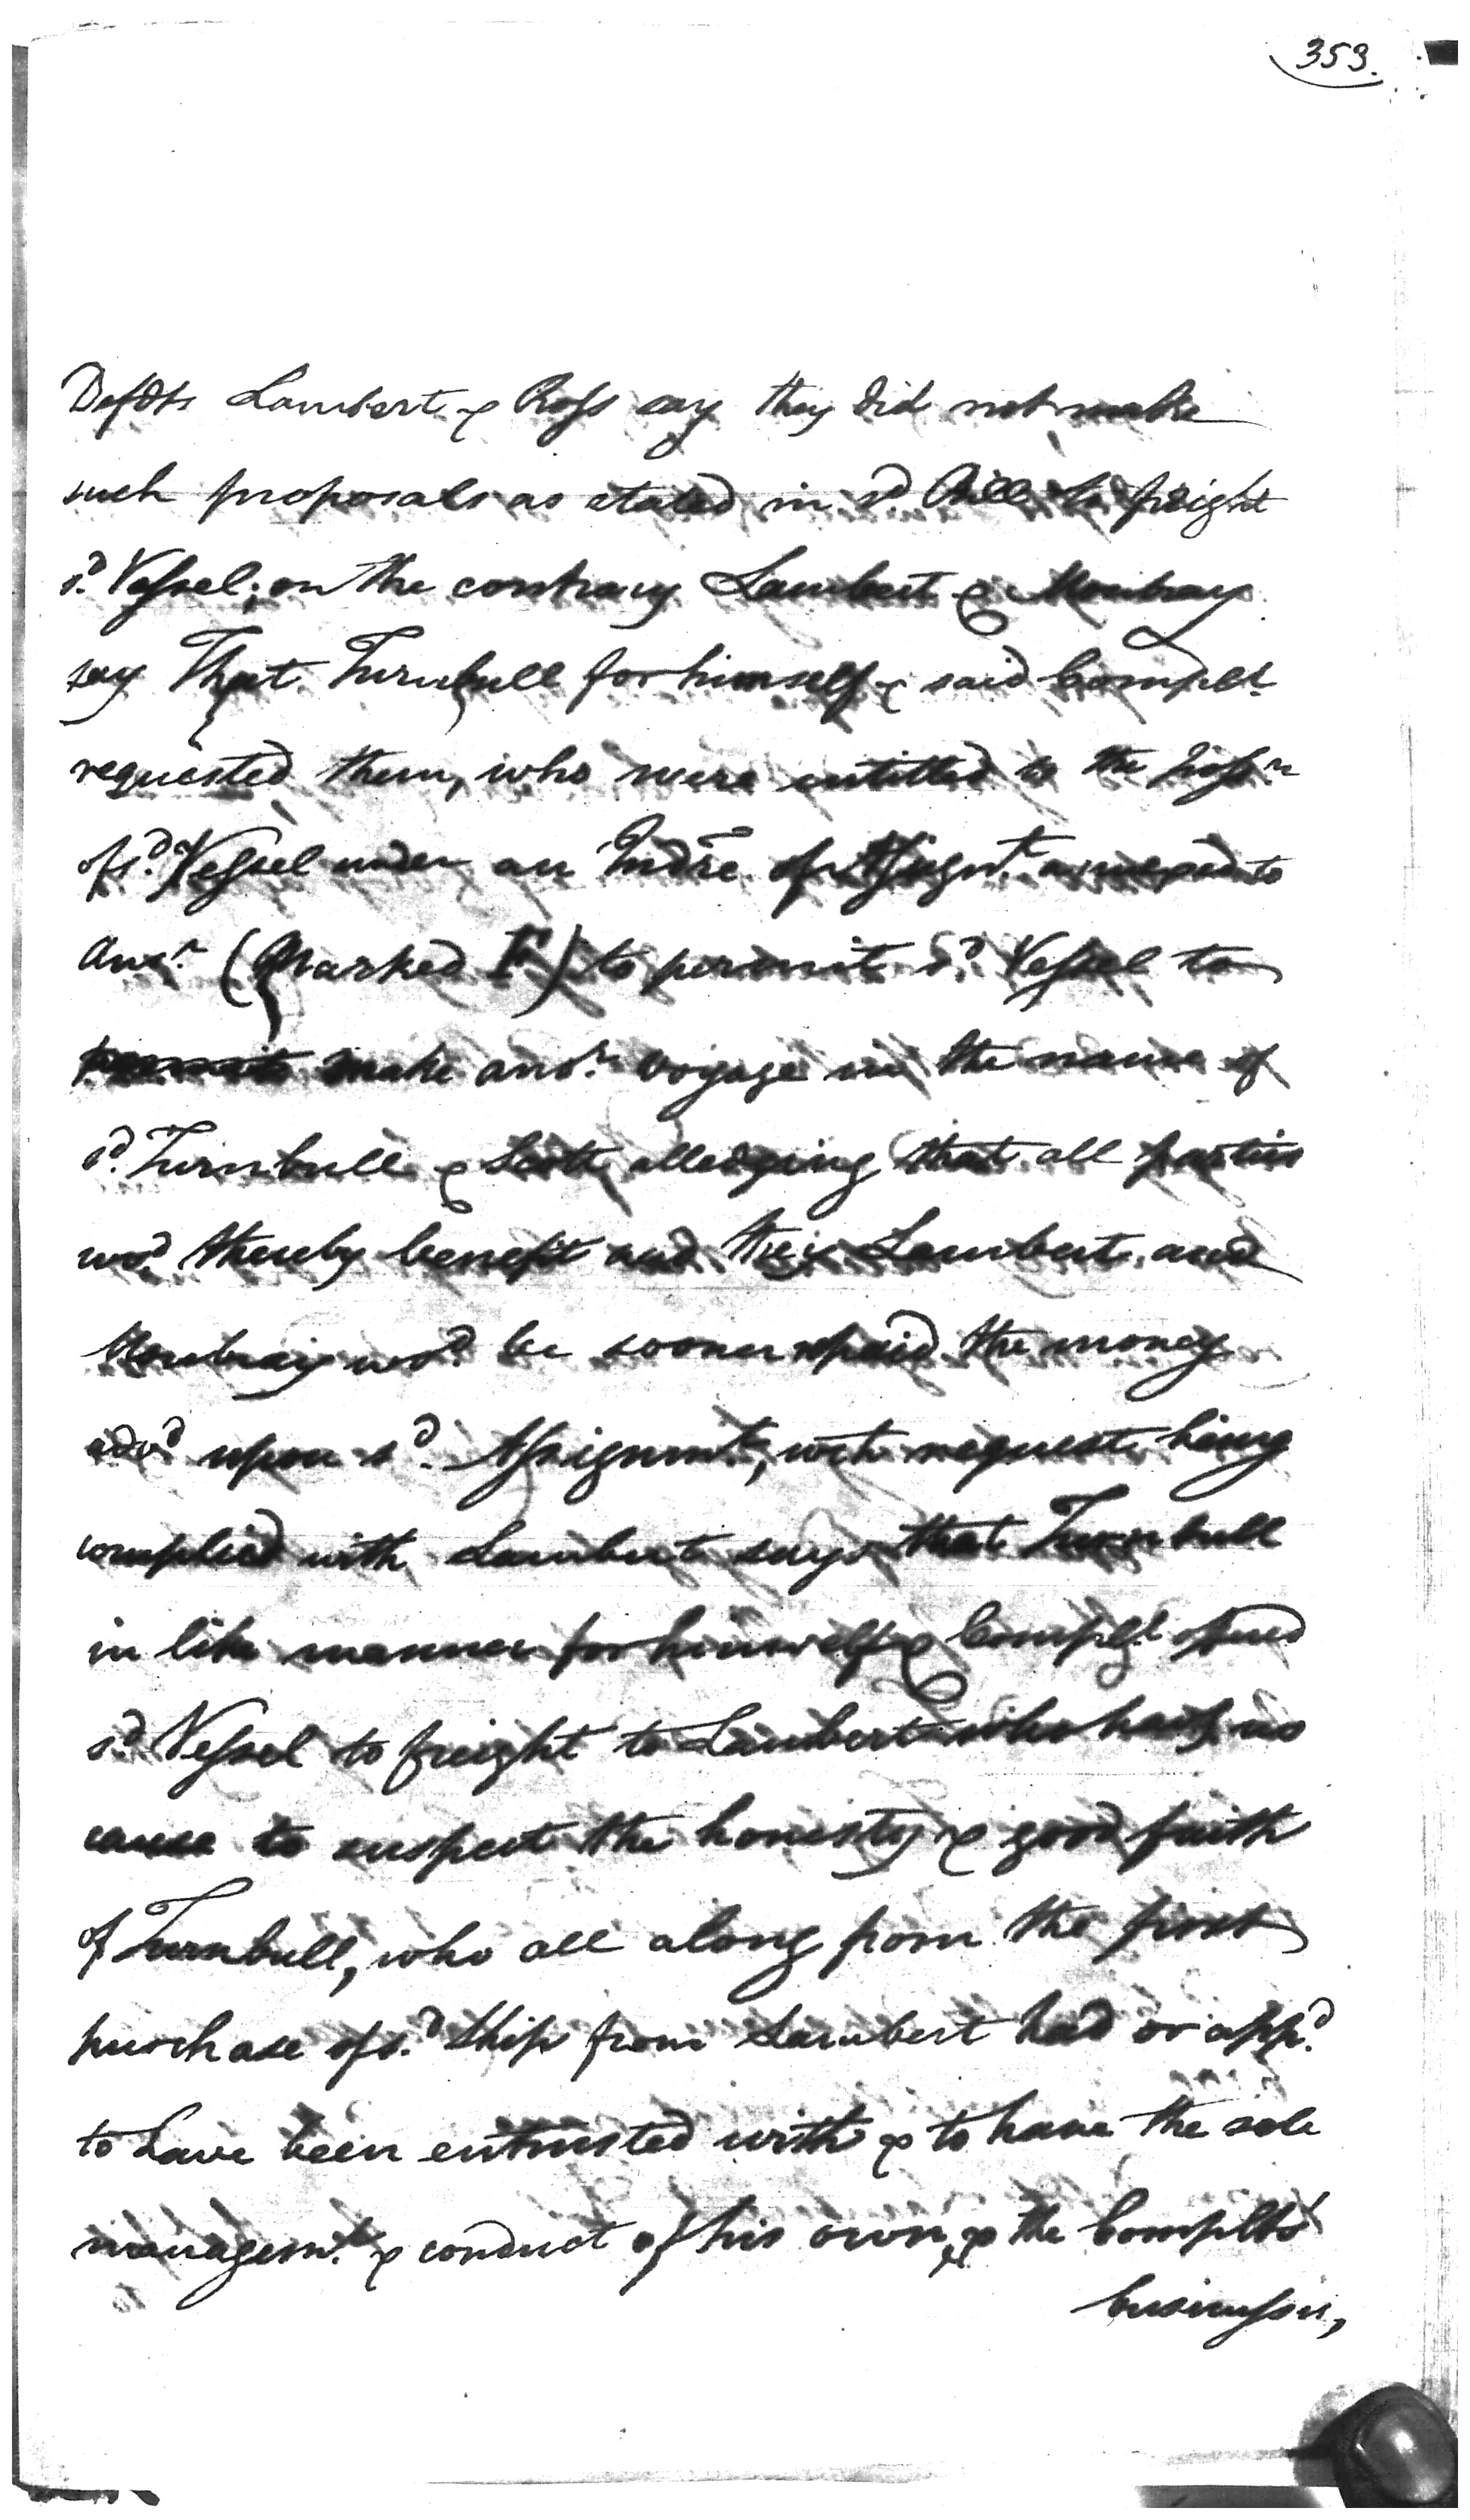 353.
Defdts Lambert & Ross say they did not make
such proposals as stated in sd. Bill to freight
sd. Vessel; on the contrary Lambert & Moubray
say That Turnbull for himself & said Complt.
requested them, who were entitled to the poss.n
of sd. Vessel under an Indre. of Assignt. annexed to
Answr. (Marked F) to permit sd. Vessel to
make anor. voyage in the name of
sd. Turnbull & Scott alledging that all parties
wod. thereby benefit and they Lambert and
Moubray wod. be sooner repaid the money
advd. upon sd. Assignmt., wch request being
complied with Lambert says that Turnbull
in like manner for himself & Complt. offered
sd. Vessel to freight to Lambert who havg. no
cause to suspect the honesty & good faith
of Turnbull, who all along from the first
purchase of sd. Ship from Lambert had or appd.
to have been entrusted with & to have the sole
managemt. & conduct of his own & the Complts
business,